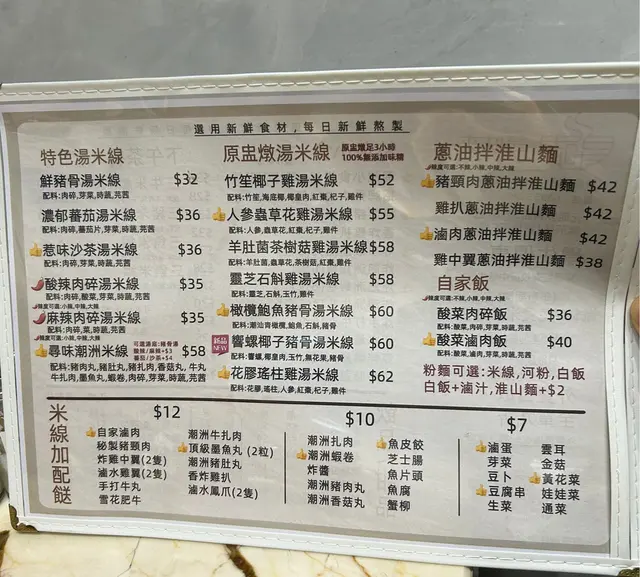 選用新鮮食材,每日新鮮熬製
特色湯米線
鮮豬骨湯米線 $32
配料:肉碎,芽菜,時蔬,芫茜
濃郁蕃茄湯米線 $36
配料:肉碎,蕃茄片,芽菜,時蔬,芫茜
惹味沙茶湯米線 $36
配料:肉碎,芽菜,時蔬,芫茜
酸辣肉碎湯米線 $35
配料:肉碎,酸菜,芽菜,時蔬,芫茜
辣度可選:小辣,中辣,大辣
麻辣肉碎湯米線 $35
配料:肉碎,芽菜,時蔬,芫茜
辣度可選:小辣,中辣,大辣
尋味潮洲米線 $58
可選湯底:豬骨湯
酸辣/麻辣+$3
蕃茄/沙茶+$4
配料:豬肉丸,豬肚丸,豬扎肉,香菇丸,牛丸
牛扎肉,墨魚丸,蝦卷,肉碎,芽菜,時蔬,芫茜
原盅燉湯米線
原盅燉足3小時
100%無添加味精
竹笙椰子雞湯米線 $52
配料:竹笙,海底椰,椰皇肉,紅棗,杞子,雞件
人參蟲草花雞湯米線 $55
配料:人參,蟲草花,紅棗,杞子,雞件
羊肚菌茶樹菇雞湯米線 $58
配料:羊肚菌,蟲草花,茶樹菇,紅棗,雞件
靈芝石斛雞湯米線 $58
配料:靈芝,石斛,玉竹,雞件
橄欖鮑魚豬骨湯米線 $60
配料:潮汕青橄欖,鮑魚,石斛,豬骨
新品
NEW
響螺椰子豬骨湯米線 $60
配料:響螺,椰皇肉,玉竹,無花果,豬骨
花膠瑤柱雞湯米線 $62
配料:花膠,瑤柱,人參,紅棗,杞子,雞件
蔥油拌淮山麵
辣度可選:不辣,小辣,中辣,大辣
豬頸肉蔥油拌淮山麵 $42
雞扒蔥油拌淮山麵 $42
滷肉蔥油拌淮山麵 $42
雞中翼蔥油拌淮山麵 $38
自家飯
辣度可選:不辣,小辣,中辣,大辣
酸菜肉碎飯 $36
配料:酸菜,肉碎,芽菜,時蔬,芫茜
酸菜滷肉飯 $40
配料:酸菜,滷肉,芽菜,時蔬,芫茜
粉麵可選:米線,河粉,白飯
白飯+滷汁,淮山麵+$2
米線加配餸
$12
自家滷肉
秘製豬頸肉
炸雞中翼(2隻)
滷水雞翼(2隻)
手打牛丸
雪花肥牛
潮洲牛扎肉
頂級墨魚丸(2粒)
潮洲豬肚丸
香炸雞扒
滷水鳳爪(2隻)
$10
潮洲扎肉
潮洲蝦卷
炸醬
潮洲豬肉丸
潮洲香菇丸
魚皮餃
芝士腸
魚片頭
魚腐
蟹柳
$7
滷蛋
芽菜
豆卜
豆腐串
生菜
雲耳
金菇
黃花菜
娃娃菜
通菜